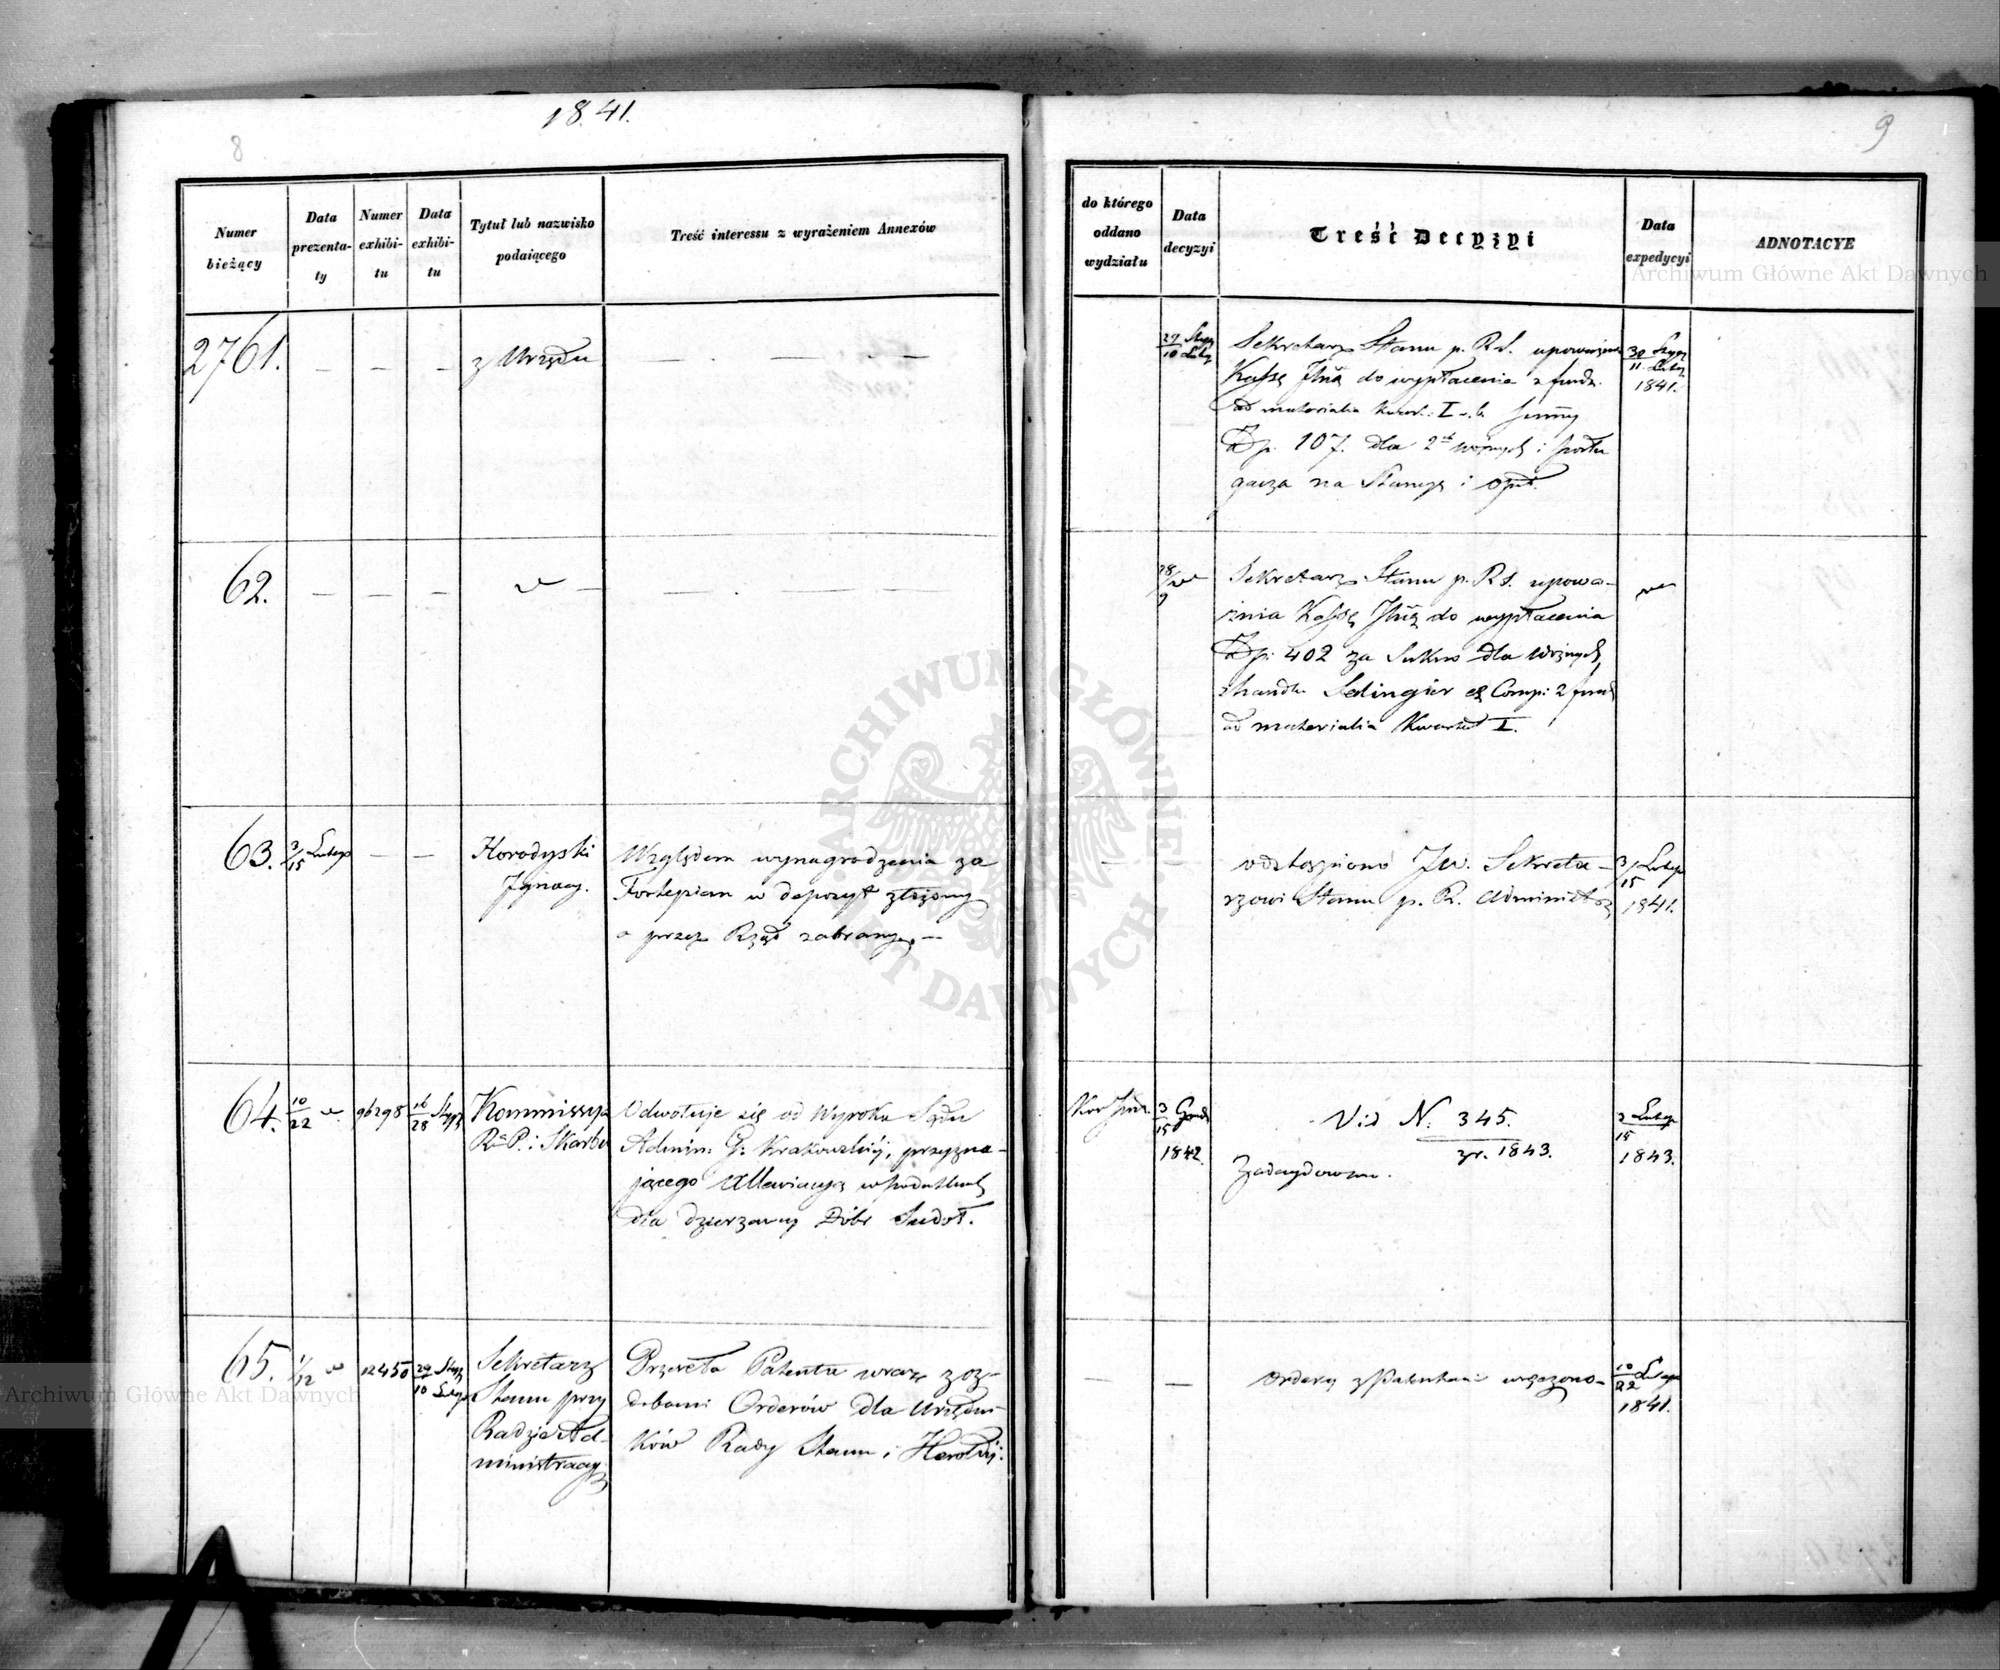 1841.
8
Numer
bieżący
Data
prezenta-
ty
Numer
exhibi-
tu
Data
exhibi-
tu
Tytuł lub nazwisko
podaiącego
Treść interessu z wyrażeniem Annexów
2761.
— — —
z Urzędu
— — — —
62.
— — — — — — —
63.
3/15 Lutego
— —
Horodyski
Ignacy.
Względem wynagrodzenia za
Fortepian w depozyt złożony
a przez Rząd zabrany. —
64.
10/22
96298
16/28 Stycz
Kommissya
P. i Skarbu
Odwołuje się od Wyroku Sądu
Admin: G. Krakowskiej, przyzna-
jącego
dla dzierzawcy Dóbr Sudoł.
65.
1/12
12450
29 Stycz
10 Lutego
Sekretarz
Stanu przy
Radzie Ad-
ministracyj
Przesyła Patenta wraz z oz-
dobami Orderów dla Urzędni-
ków Rady Stanu i Heroldyi.
9
do którego
oddano
wydziału
Data
decyzyi
Treść Decyzyi
Data
expedycyi
ADNOTACYE
29 Stycz
10 Luty
Sekretarz Stanu p. R.S. upoważnia
Kassę do wypłacenia z fundz.
ad materialia kwart: I
Zp. 107. dla 2 woźnych i
na Stancyę i opał.
30 Stycz
11. Luty
1841.
28/9
Sekretarz Stanu p. R.S. upowa-
żnia Kassę do wypłacenia
Zp: 402 za Sukno dla Woźnych
z handlu Sedingier et Comp: z fund
ad materialia Kwartał I.
— —
odstąpiono Jw. Sekreta-
rzowi Stanu p. R. Administr
3/15 Lutego
1841.
3 Grud
15
1842.
Vid N. 345.
zr. 1843.
Zadecydowano.
3 Lutego
15
1843.
— —
Ordery z Patentami wręczono-
10 Lutego
22
1841.
Archiwum Główne Akt Dawnych
Archiwum Główne Akt Dawnych
ARCHIWUM GŁÓWNE AKT DAWNYCH